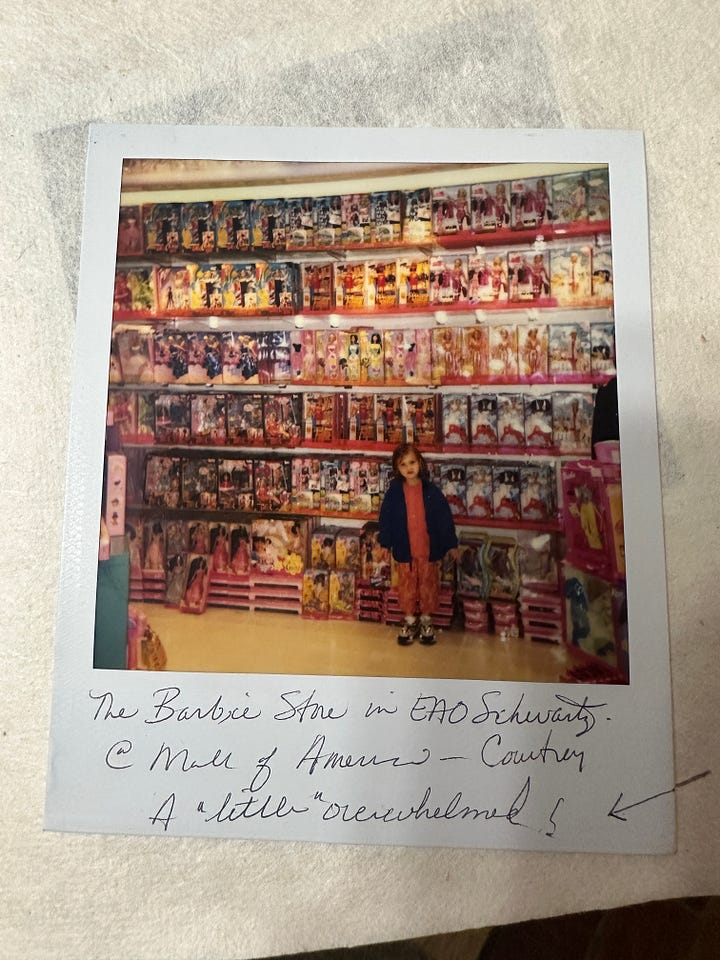 The Barbie Store in EAO Schwartz.
@ Mall of America — Courtney
A "little" overwhelmed!